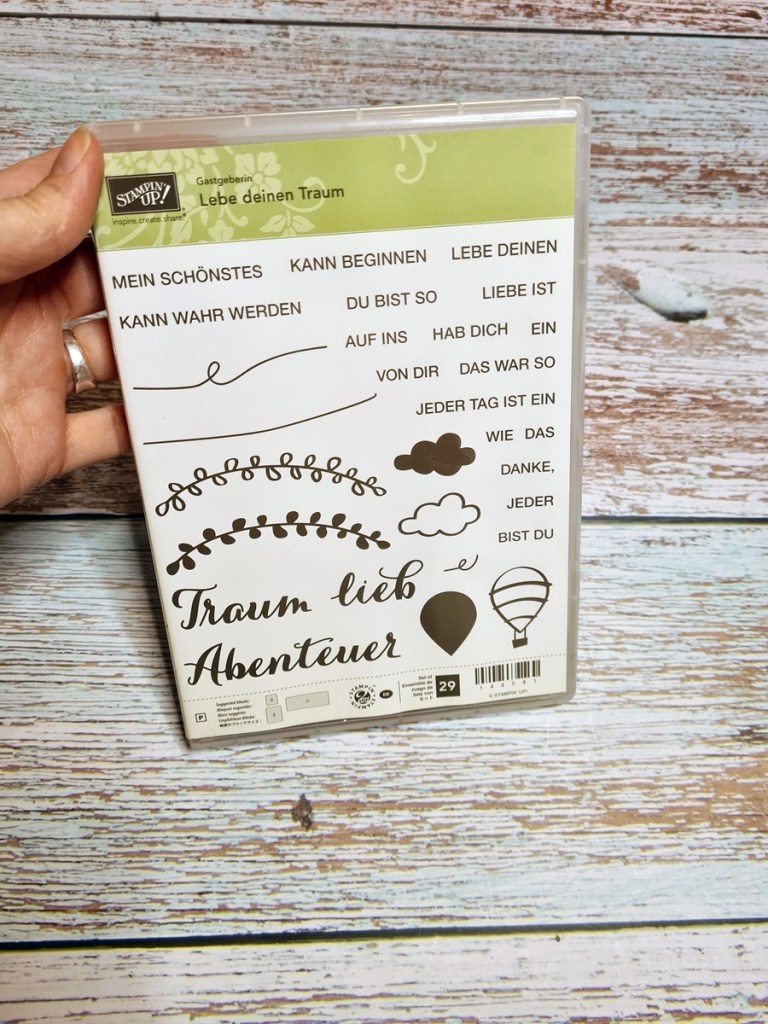 STAMPIN' UP!
inspire.create.share
Gastgeberin
Lebe deinen Traum
MEIN SCHÖNSTES KANN BEGINNEN LEBE DEINEN
KANN WAHR WERDEN DU BIST SO LIEBE IST
AUF INS HAB DICH EIN
VON DIR DAS WAR SO
JEDER TAG IST EIN
WIE DAS
DANKE,
JEDER
BIST DU
Traum lieb
Abenteuer
P
Suggested blocks:
Set of
Ensemble de
Juego de
Satz von
セット
29
DE
144541
© STAMPIN' UP!